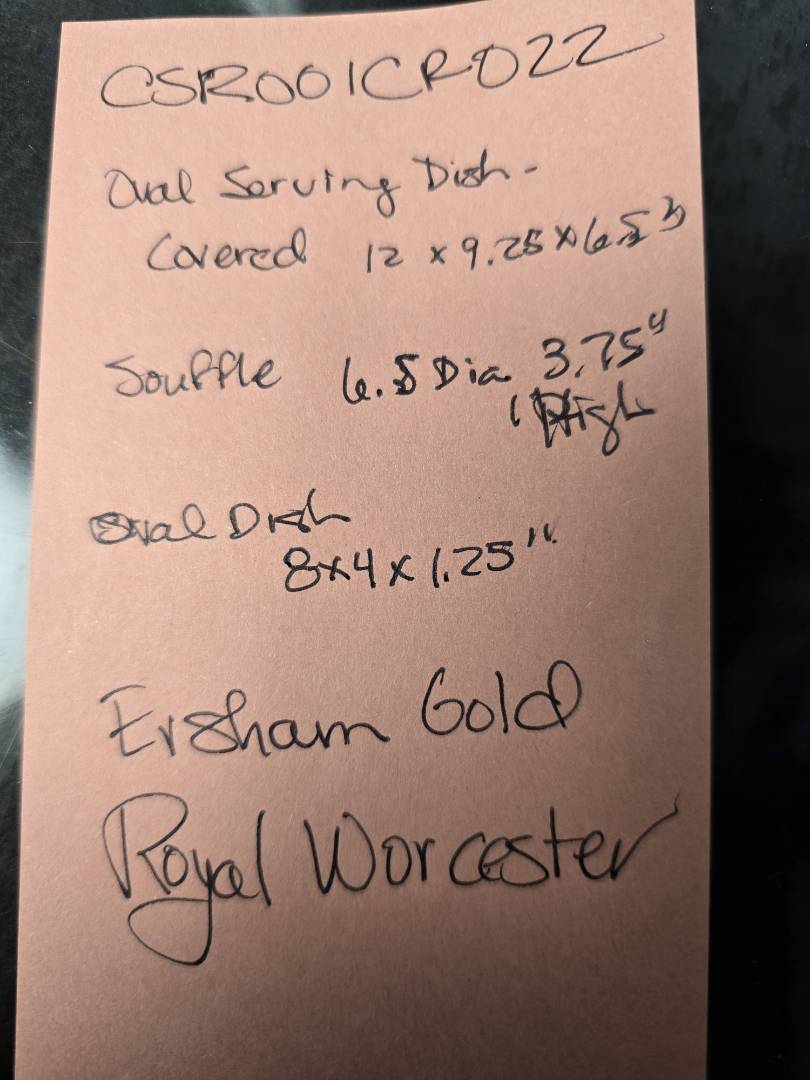 CSR001CR022
Oval Serving Dish -
Covered 12 x 9.25 x 6.5"
Souffle 6.5 Dia 3.75"
High
Oval Dish
8x4x1.25"
Evsham Gold
Royal Worcester